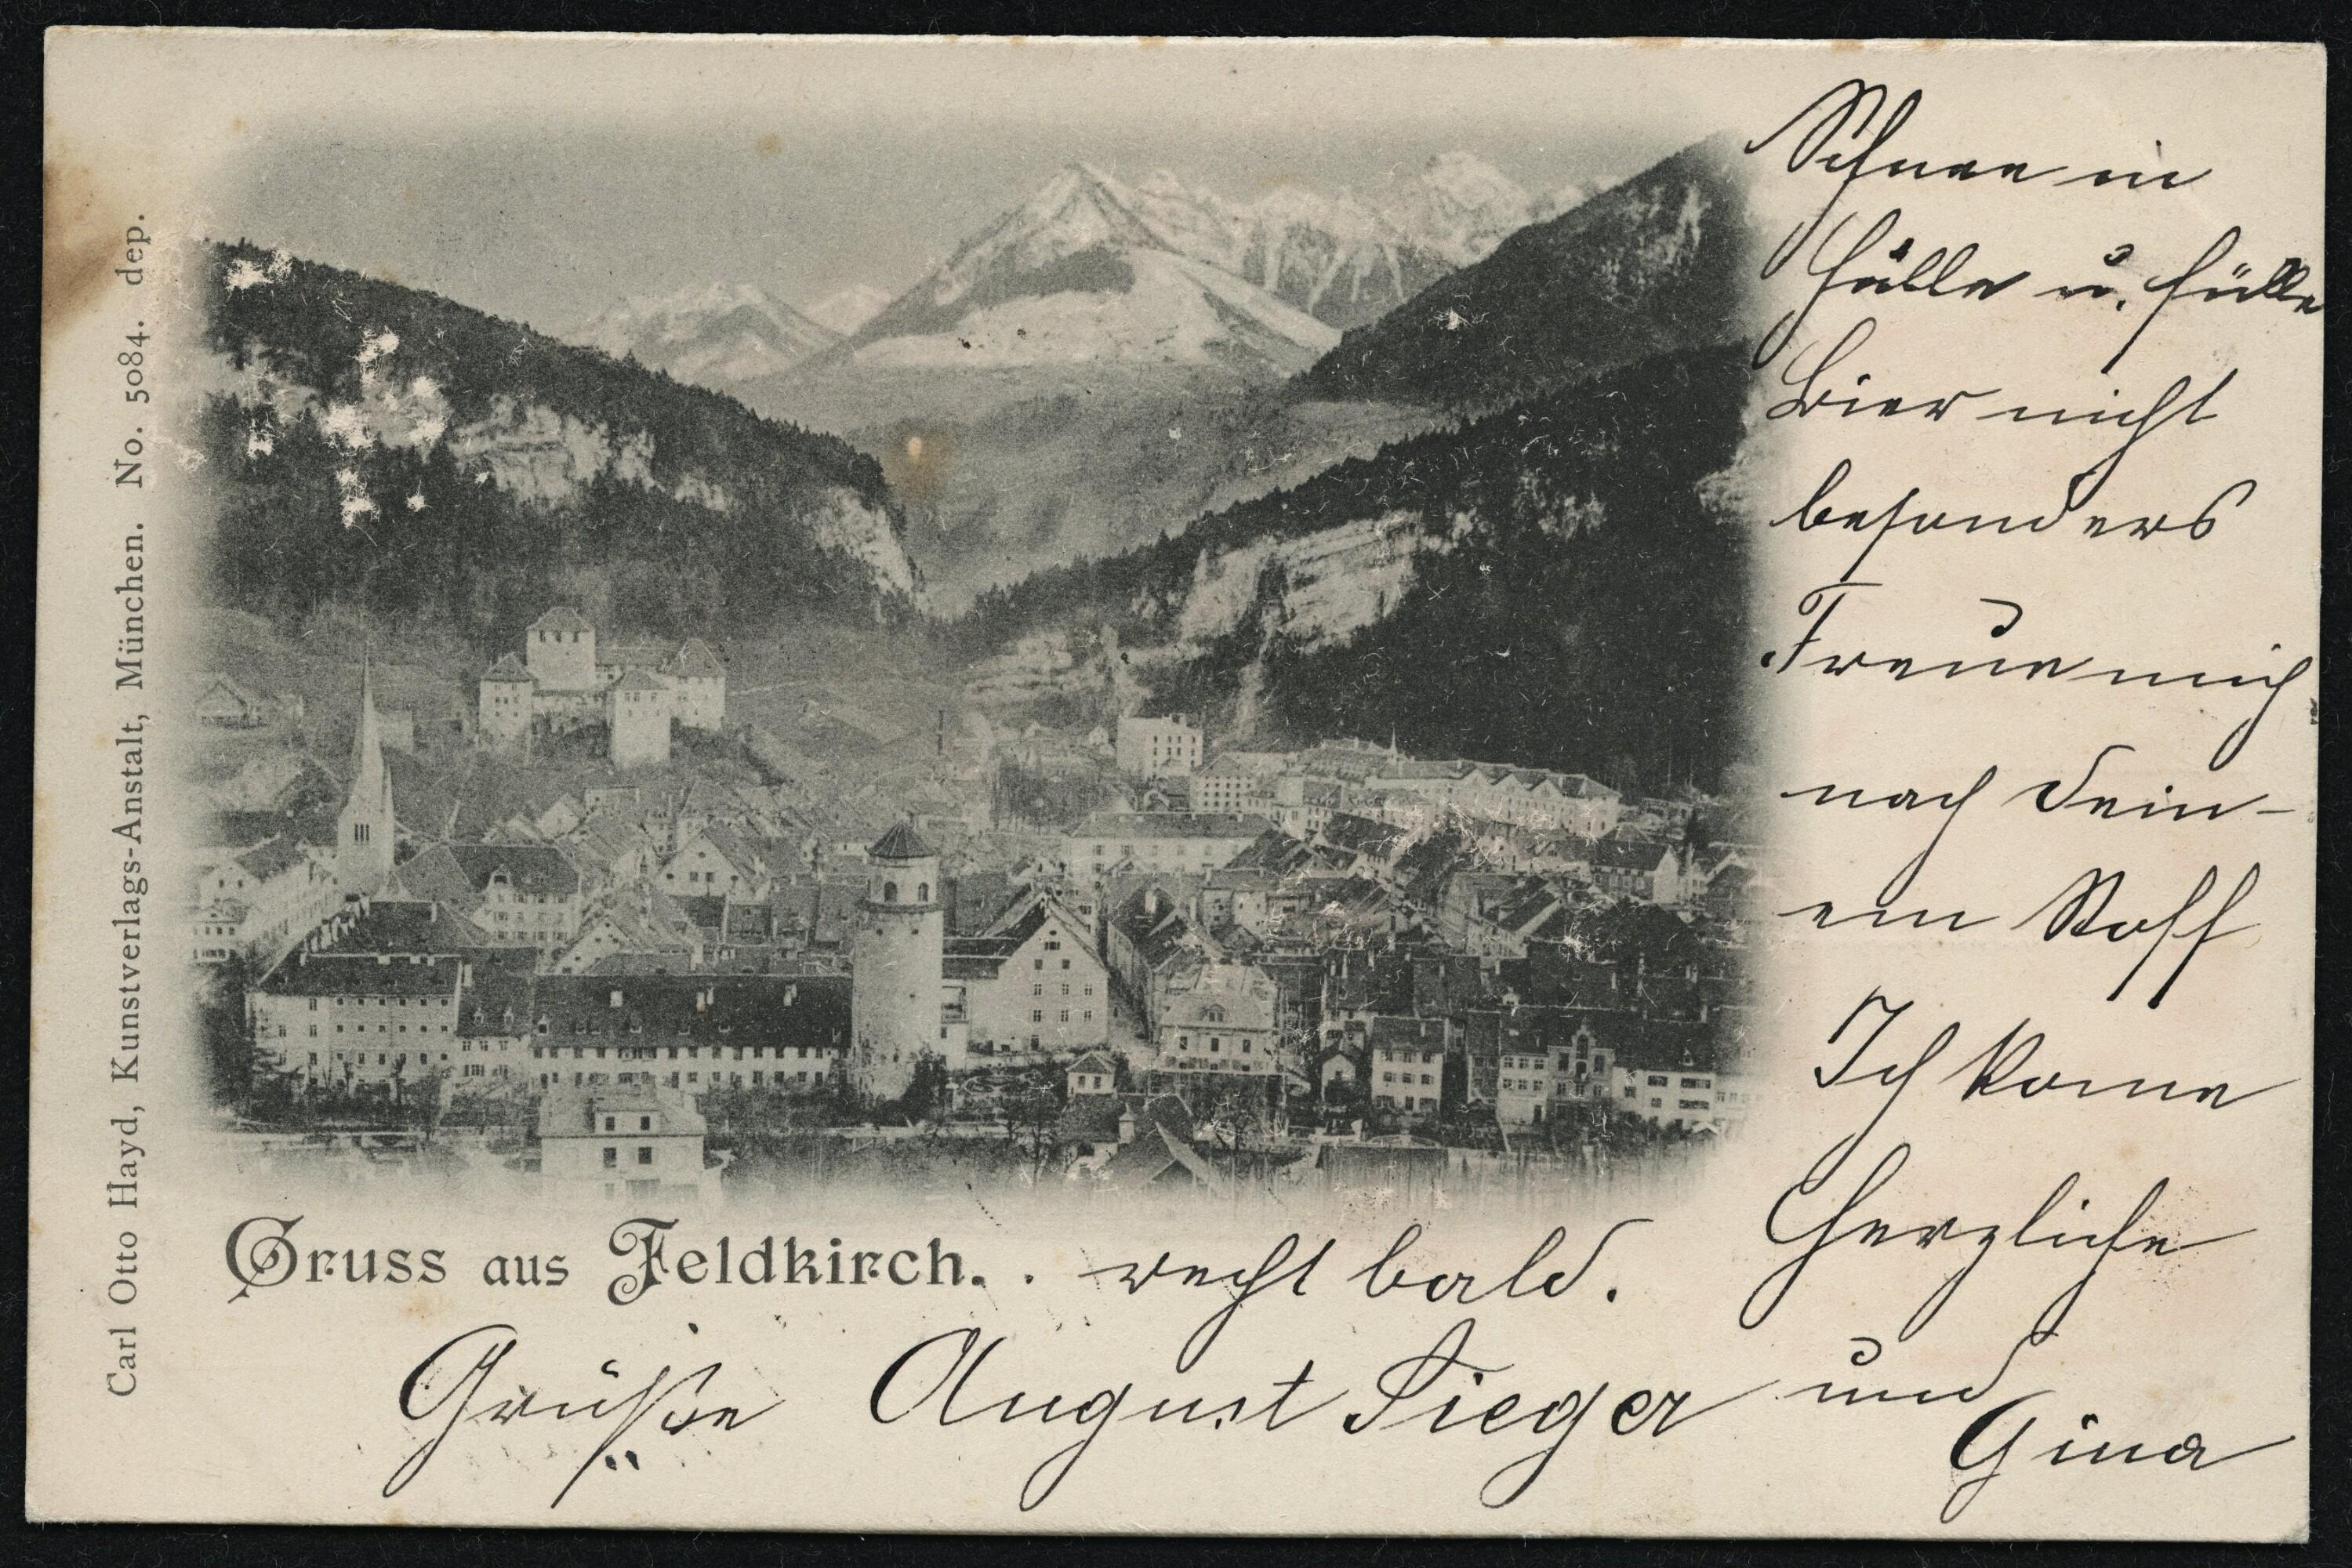 Schnee in
Hülle u. Fülle
Bier nicht
besonders
Freue mich
nach Dein-
em Stoff
Ich kome
Gruss aus Feldkirch. . recht bald.
Herzliche
Grüße August Sieger und
Gina
Carl Otto Hayd, Kunstverlags-Anstalt, München. No. 5084. dep.